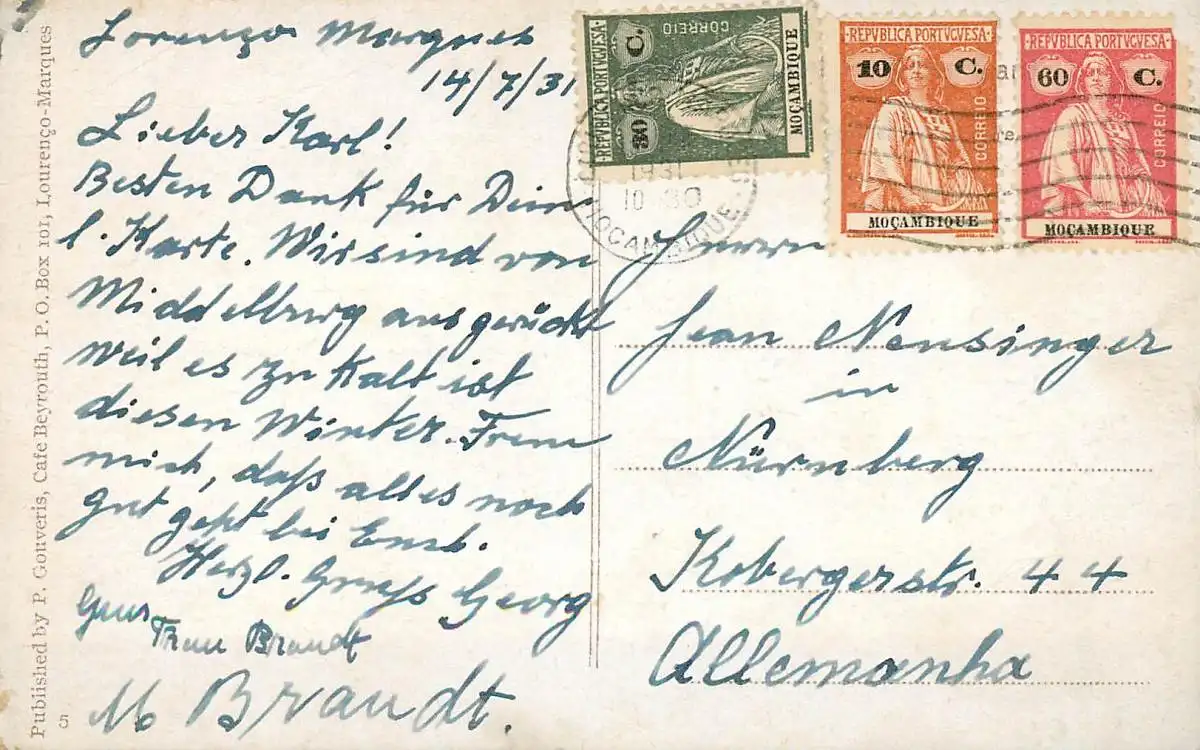 Lorenço Marques
14/7/31
Lieber Karl!
Besten Dank für Dein
l. Karte. Wir sind von
Middelburg ausgerückt
weil es zu kalt ist
diesen Winter. Freue
mich, daß alles noch
gut geht bei Euch.
Herzl. Gruß Georg
Gruß
Frau Brandt
M Brandt.
Herrn
Jean Neusinger
in
Nürnberg
Kobergerstr. 44
Allemanha
REPVBLICA PORTVGVESA
30 C.
CORREIO
MOÇAMBIQUE
REPVBLICA PORTVGVESA
10 C.
CORREIO
MOÇAMBIQUE
REPVBLICA PORTVGVESA
60 C.
CORREIO
MOÇAMBIQUE
1931
10 30
MOÇAMBIQUE
Published by P. Gouveris, Cafe Beyrouth, P. O. Box 101, Lourenço-Marques
5